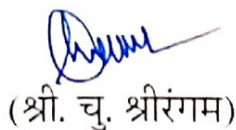 (श्री. चु. श्रीरंगम)